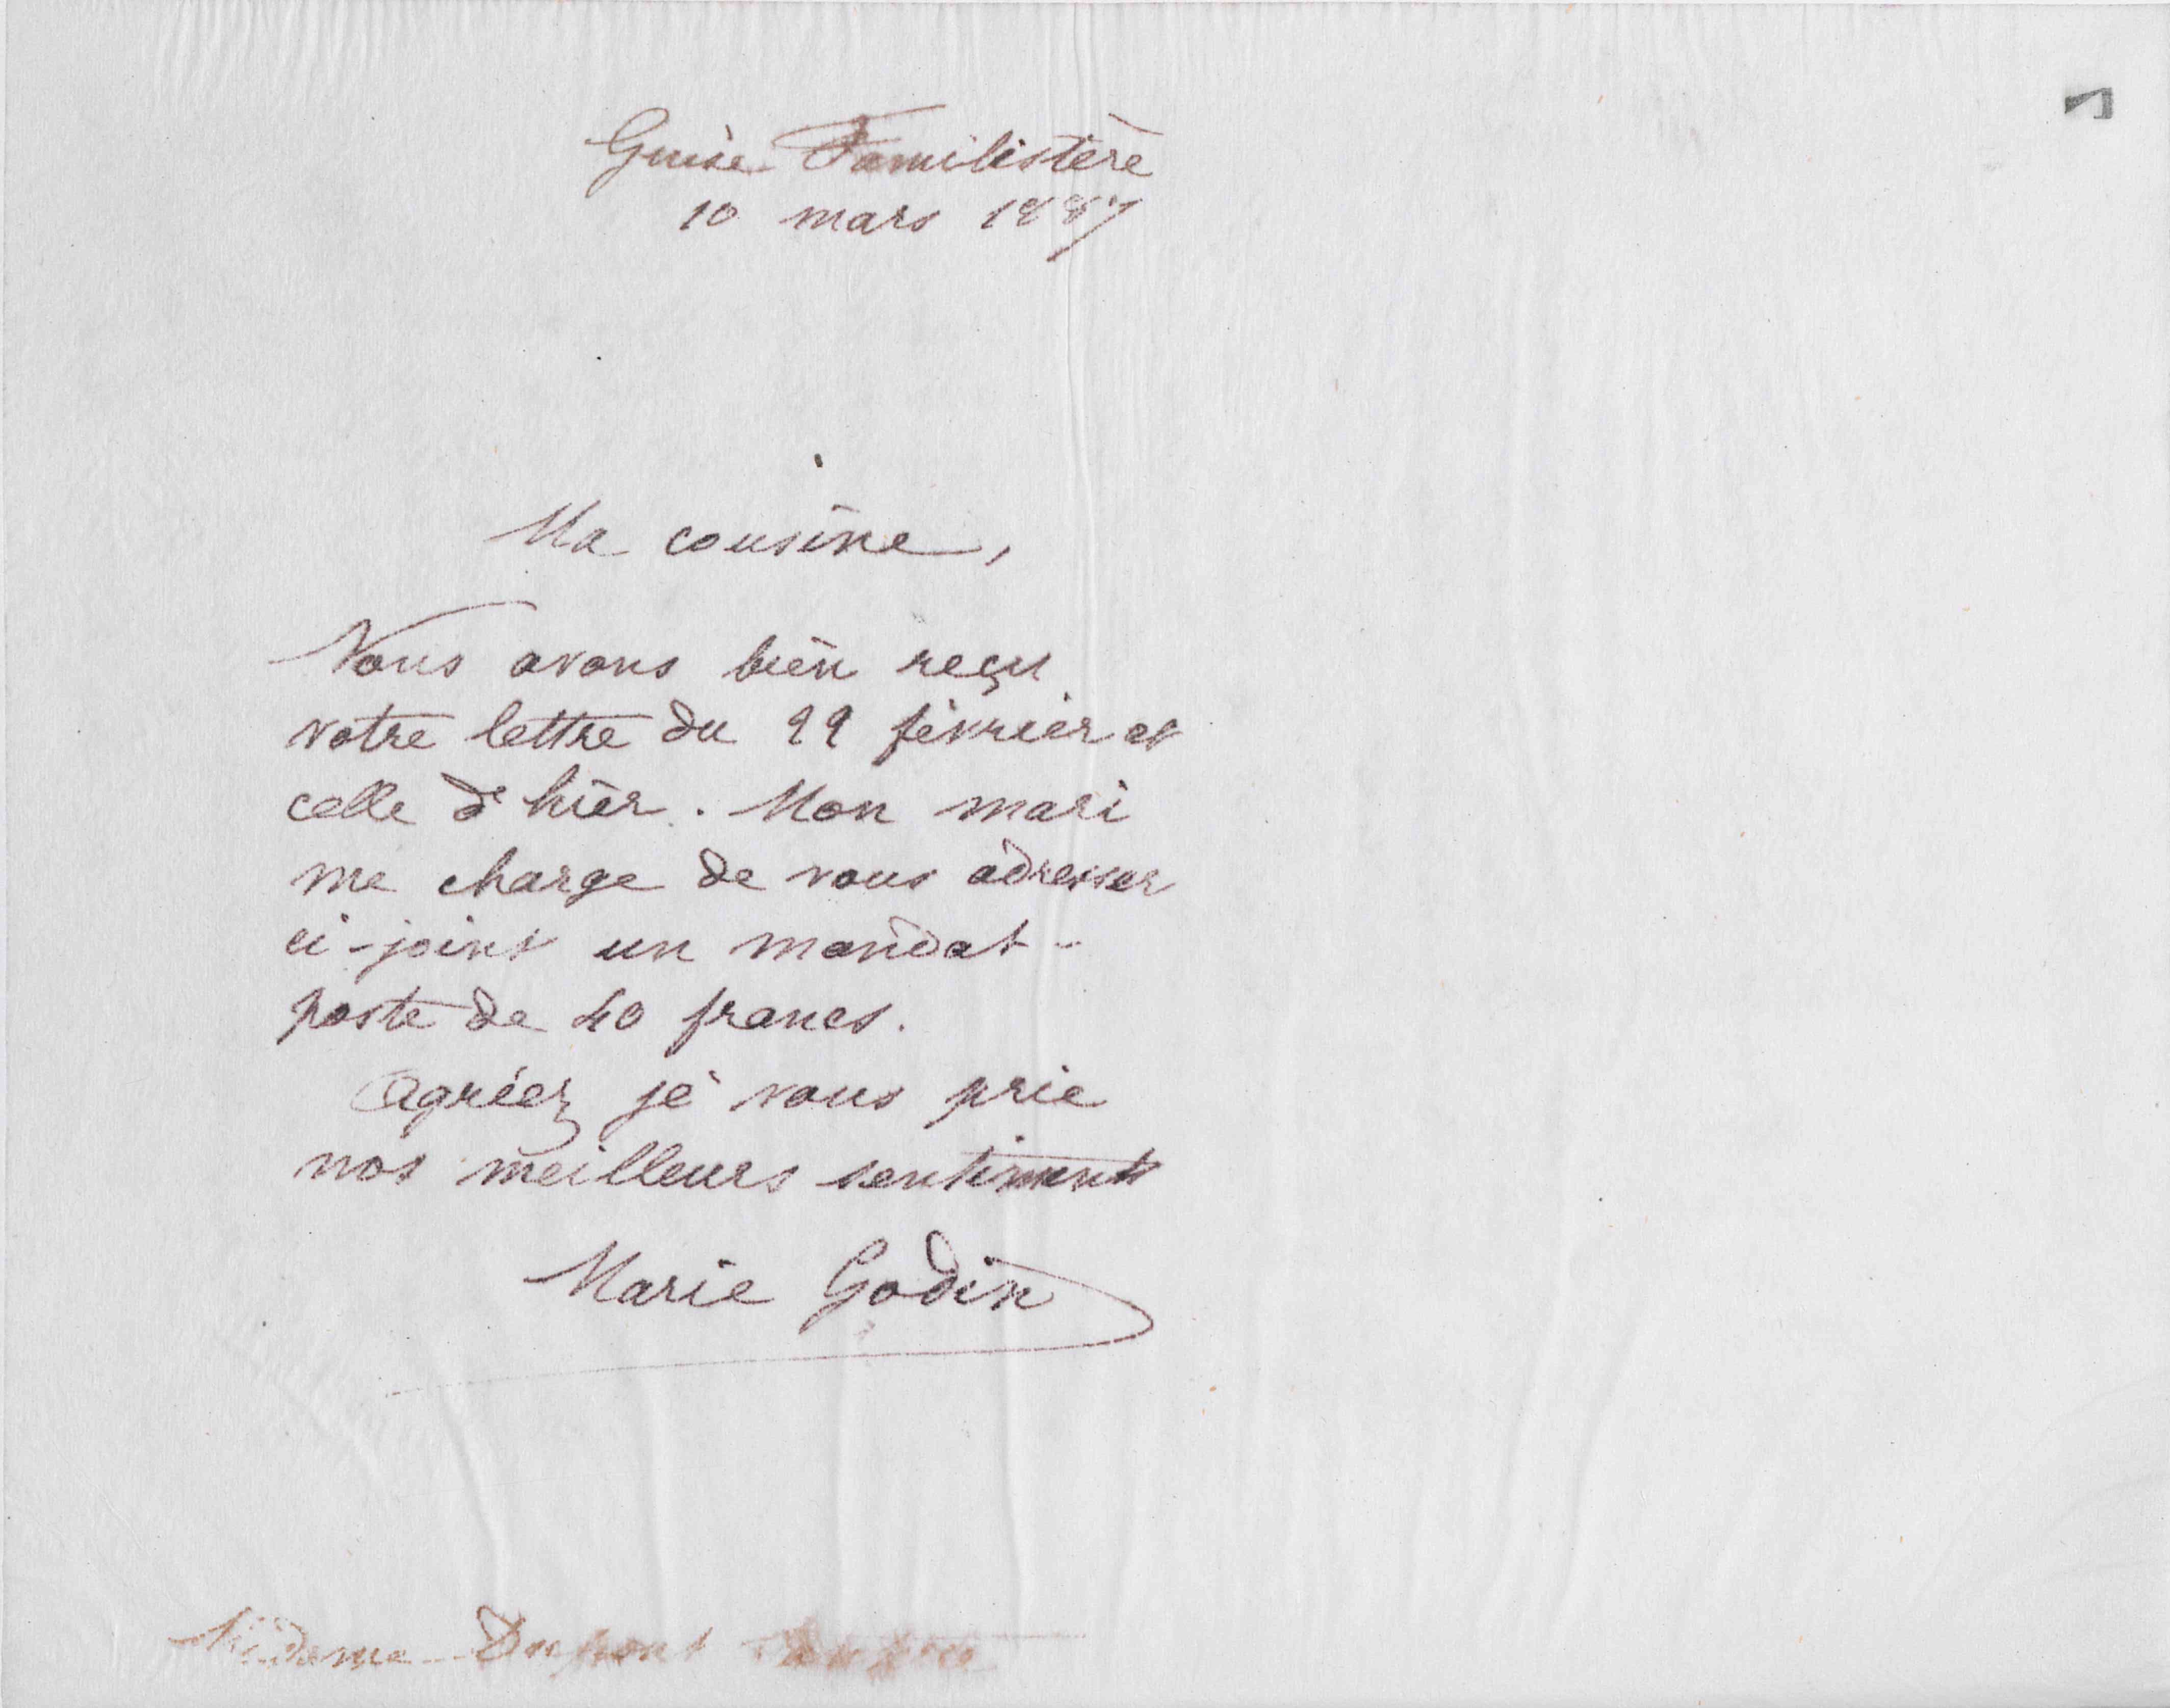 Guise Familistère
10 mars 1887
Ma cousine,
Nous avons bien reçu
votre lettre du 22 février et
celle d'hier. Mon mari
me charge de vous adresser
ci-joint un mandat-
poste de 40 francs.
Agréez je vous prie
nos meilleurs sentiments
Marie Godin
Madame Dupont